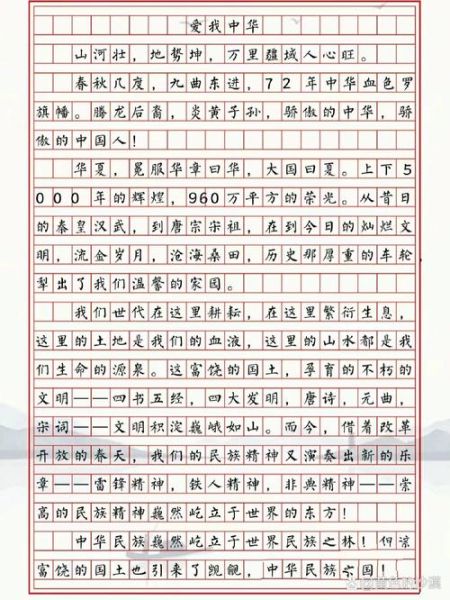 爱我中华
山河壮，地势坤，万里疆域人心旺。
春秋几度，九曲东进，72年中华血色罗
旗幡。腾龙后裔，炎黄子孙，骄傲的中华，骄
傲的中国人！
华夏，冕服华章曰华，大国曰夏。上下5
000年的辉煌，960万平方的荣光。从昔日
的秦皇汉武，到唐宗宋祖，在到今日的灿烂文
明，流金岁月，沧海桑田，历史那厚重的车轮
犁出了我们温馨的家园。
我们世代在这里耕耘，在这里繁衍生息，
这里的土地是我们的血液，这里的山水都是我
们生命的源泉。这富饶的国土，孕育的不朽的
文明——四书五经，四大发明，唐诗，元曲，
宋词——文明积淀巍峨如山。而今，借着改革
开放的春天，我们的民族精神又演奏出新的乐
章——雷锋精神，铁人精神，非典精神——崇
高的民族精神巍然屹立于世界的东方！
中华民族巍然屹立于世界民族之林！但
富饶的国土也引来了觊觎，中华民族之国！